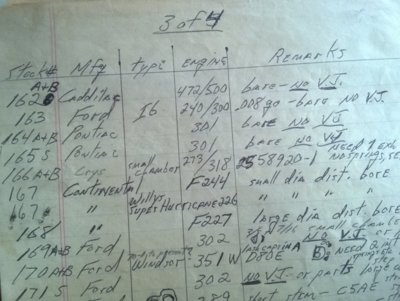 3 of 4
Stock# Mfg type Engine Remarks
A+B
162 Cadillac 472/500 bare - NO V.J.
163 Ford I6 240/300 .008 go - bare NO V.J.
164 A+B Pontiac 301 bare NO V.J.
165 S Pontiac 301 bare NO V.J. need 1 exh
166 A+B Crys small chamber 273/318 2558920-1 no springs,
167 Continental F244 small dia dist. bore
167 " Willys Super Hurricane 226 " " " "
168 " F227 large dia dist. bore
169 A+B Ford 302 small
170 A+B Ford Windsor 351W D80E NEED 2 int
171 S Ford 302 NO V.J. or parts large
289 - C5AE